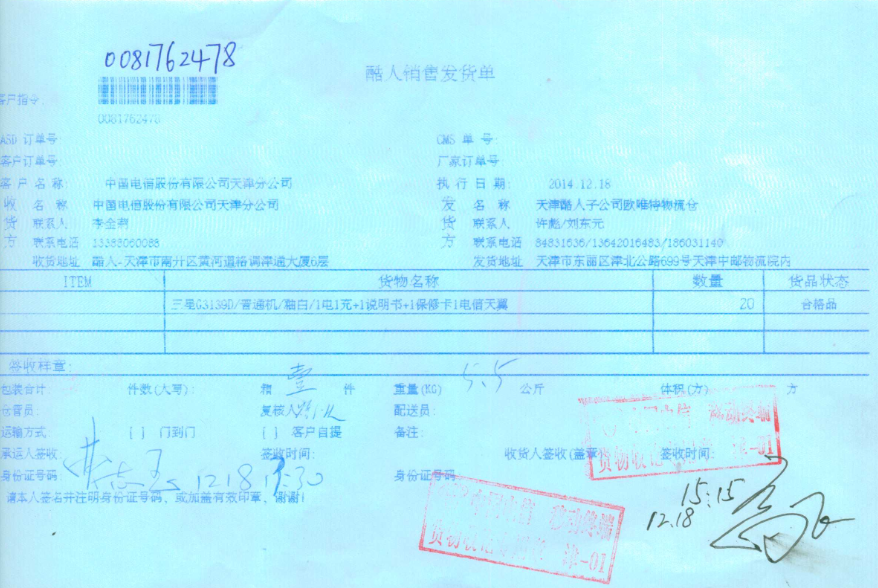 0081762478
酷人销售发货单
客户指令:
0081762478
ASD 订单号:
CMS 单 号:
客户订单号:
厂家订单号:
客 户 名 称: 中国电信股份有限公司天津分公司
执 行 日 期: 2014.12.18
收 名 称: 中国电信股份有限公司天津分公司
发 名 称: 天津酷人子公司欧唯特物流仓
货 联系人
货 联系人 许彪/刘东元
方 联系电话
方 联系电话 84831636/13642016483/186031140
收货地址 酷人-天津市南开区黄河道格调津通大厦6层
发货地址 天津市东丽区津北公路699号天津中邮物流院内
ITEM 货物名称 数量 货品状态
三星G3139D/普通机/釉白/1电1充+1说明书+1保修卡1电信天翼 20 合格品
签收样章:
包装合计: 件数(大写): 箱 壹 件 重量(KG) 5.5 公斤 体积(方) 方
仓管员: 复核人 配送员:
运输方式 [ ] 门到门 [ ] 客户自提 备注:
承运人签收: 签收时间: 收货人签收(盖章 签收时间:
身份证号码: 12.18 身份证号码
请本人签名并注明身份证号码, 或加盖有效印章, 谢谢!
中国电信 移动终端
津-01
中国电信 移动终端
津-01
15:15
12.18